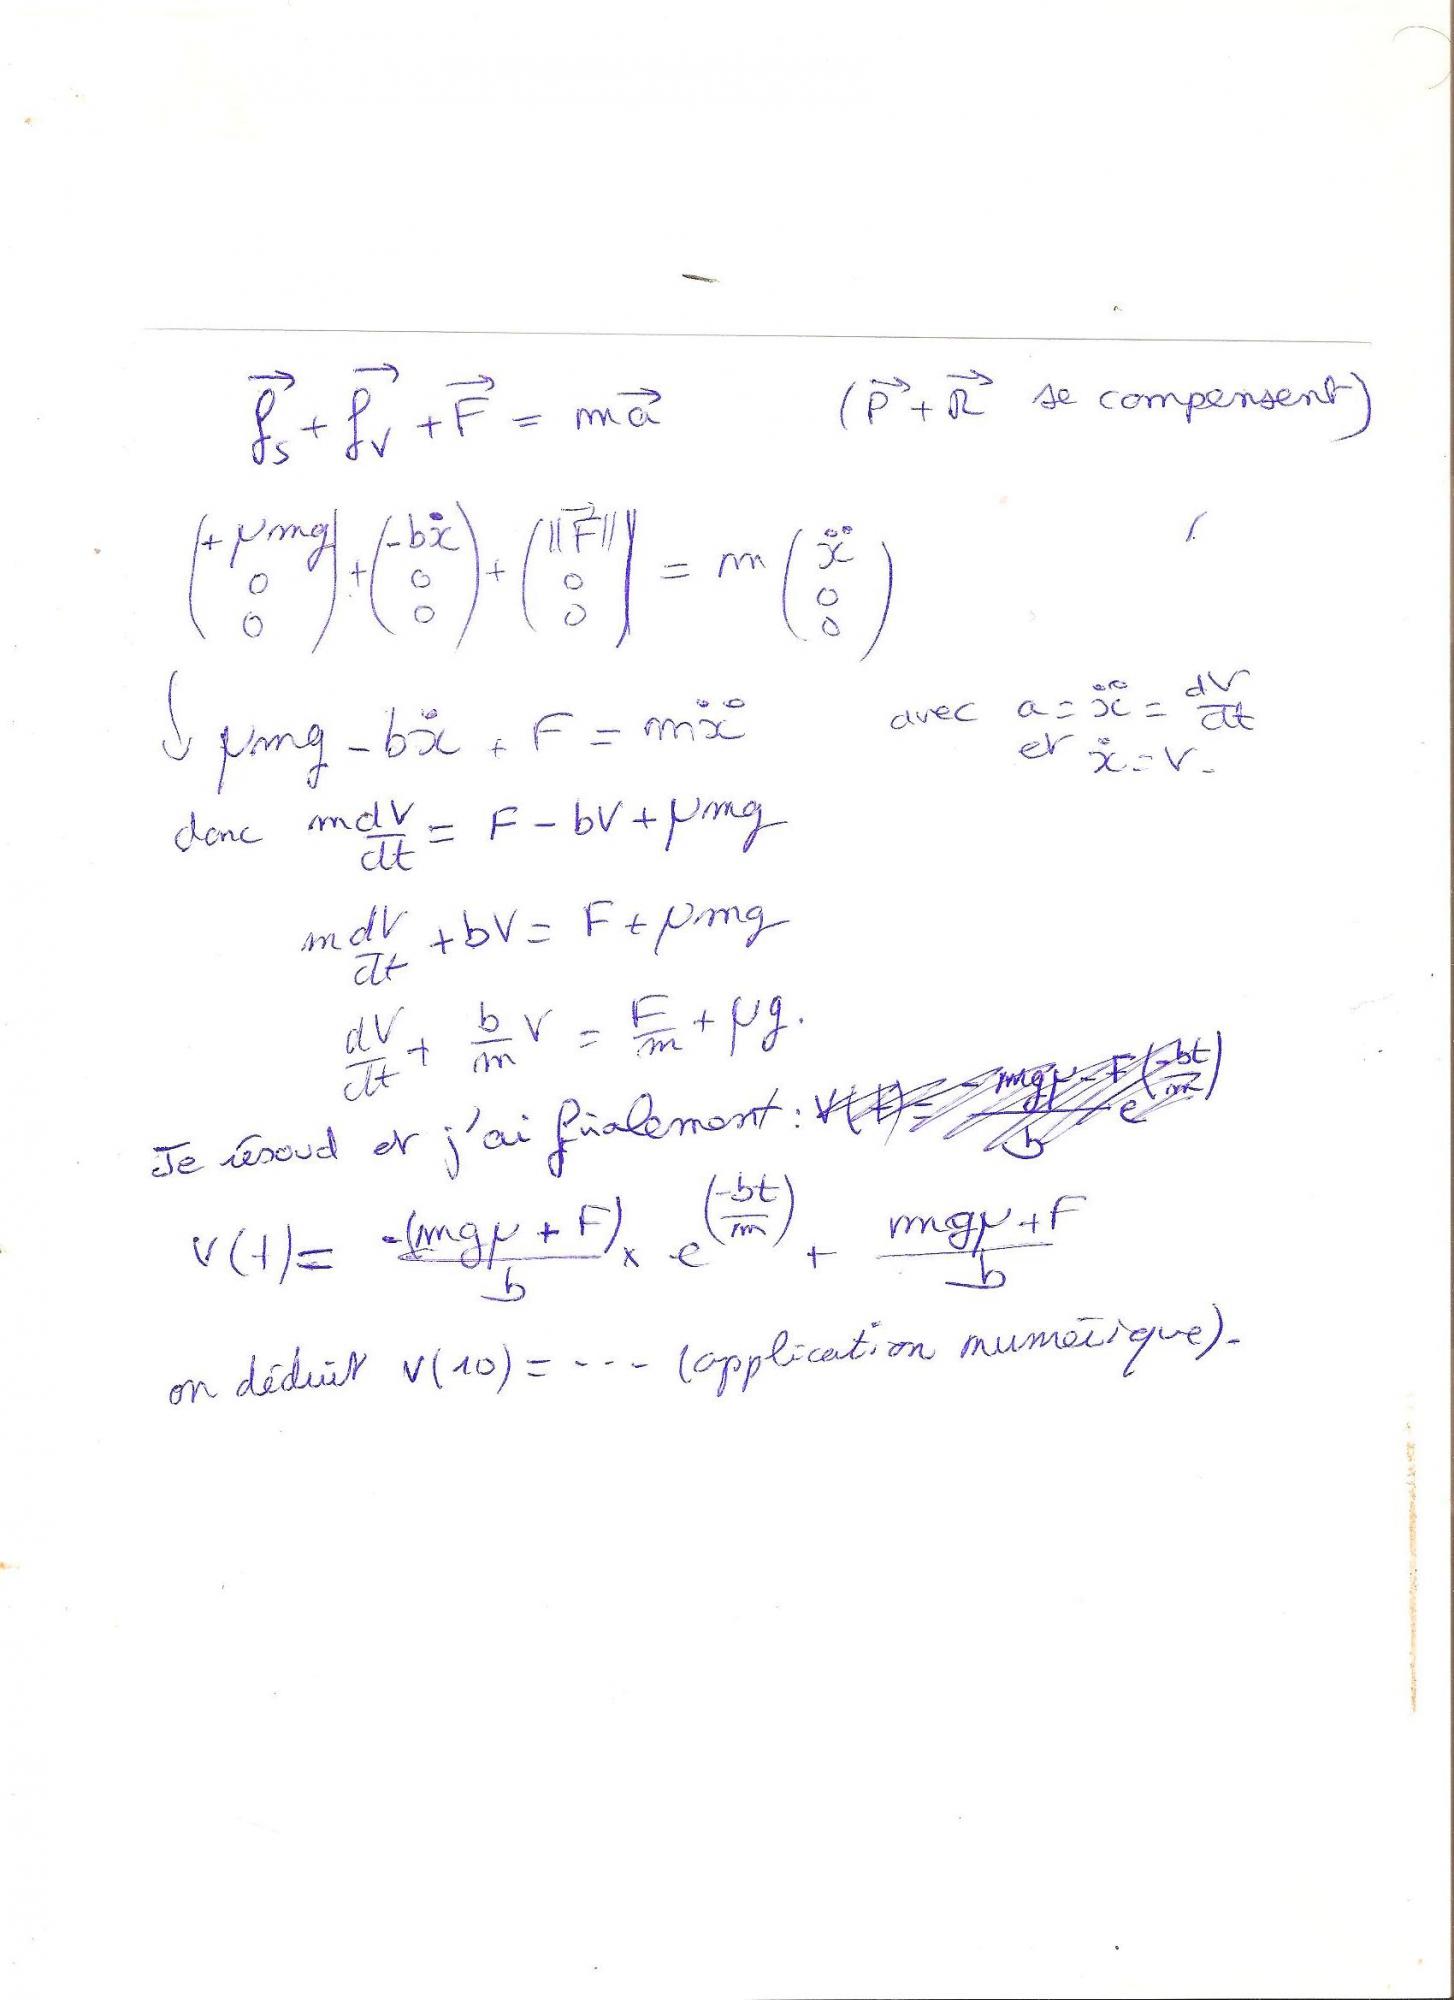 $\vec{f_s} + \vec{f_v} + \vec{F} = m\vec{a}$ ($\vec{P} + \vec{R}$ se compensent)
$\begin{pmatrix} +\mu mg \\ 0 \\ 0 \end{pmatrix} + \begin{pmatrix} -b\dot{x} \\ 0 \\ 0 \end{pmatrix} + \begin{pmatrix} \|\vec{F}\| \\ 0 \\ 0 \end{pmatrix} = m \begin{pmatrix} \ddot{x} \\ 0 \\ 0 \end{pmatrix}$
↓ $\mu mg - b\dot{x} + F = m\ddot{x}$ avec $a = \ddot{x} = \frac{dV}{dt}$
et $\dot{x} = V$.
donc $m\frac{dV}{dt} = F - bV + \mu mg$
$m\frac{dV}{dt} + bV = F + \mu mg$
$\frac{dV}{dt} + \frac{b}{m} V = \frac{F}{m} + \mu g.$
Je résoud et j'ai finalement :
$V(t) = \frac{-(mg\mu + F)}{b} \times e^{(\frac{-bt}{m})} + \frac{mg\mu + F}{b}$
on déduit V(10) = --- (application numérique).